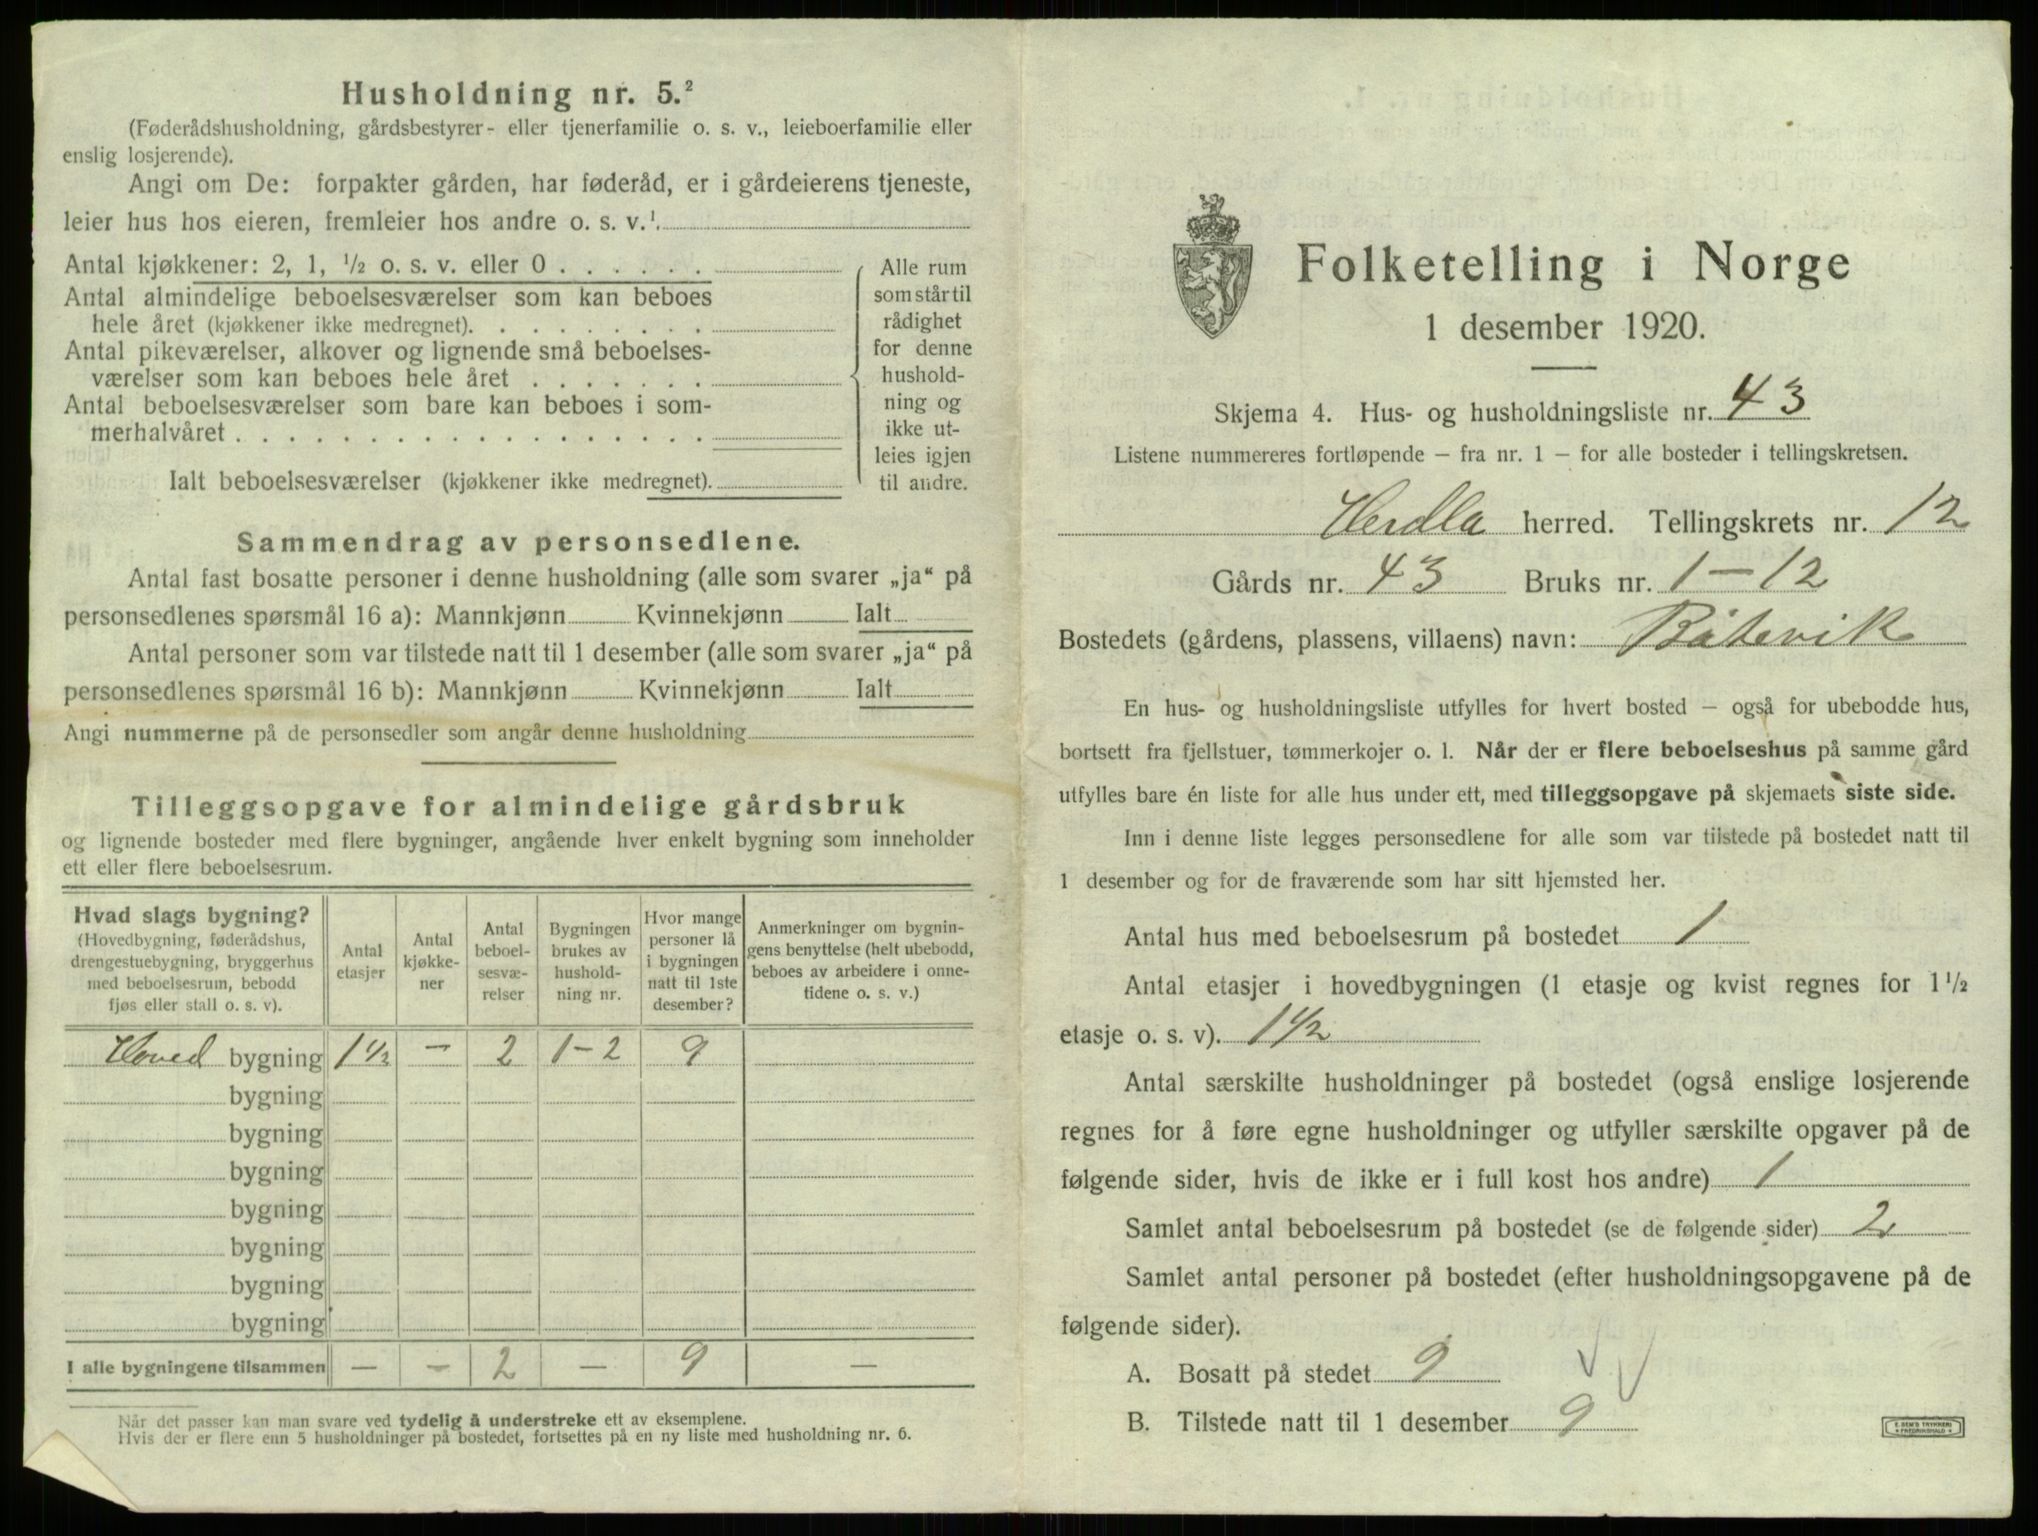 Husholdning nr. 5.²
(Føderådshusholdning, gårdsbestyrer- eller tjenerfamilie o. s. v., leieboerfamilie eller
enslig losjerende).
Angi om De: forpakter gården, har føderåd, er i gårdeierens tjeneste,
leier hus hos eieren, fremleier hos andre o. s. v.¹.
Antal kjøkkener: 2, 1, ½ o. s. v. eller 0 . . . . . .
Antal almindelige beboelsesværelser som kan beboes
hele året (kjøkkener ikke medregnet). . . . . . . . .
Antal pikeværelser, alkover og lignende små beboelses-
værelser som kan beboes hele året . . . . . . .
Antal beboelsesværelser som bare kan beboes i som-
merhalvåret . . . . . . . . . . . . . . . . . .
Ialt beboelsesværelser (kjøkkener ikke medregnet).
Alle rum
som står til
rådighet
for denne
hushold-
ning og
ikke ut-
leies igjen
til andre.
Sammendrag av personsedlene.
Antal fast bosatte personer i denne husholdning (alle som svarer „ja“ på
personsedlenes spørsmål 16 a): Mannkjønn Kvinnekjønn Ialt
Antal personer som var tilstede natt til 1 desember (alle som svarer „ja“ på
personsedlenes spørsmål 16 b): Mannkjønn Kvinnekjønn Ialt
Angi nummerne på de personsedler som angår denne husholdning
Tilleggsopgave for almindelige gårdsbruk
og lignende bosteder med flere bygninger, angående hver enkelt bygning som inneholder
ett eller flere beboelsesrum.
Hvad slags bygning?
(Hovedbygning, føderådshus,
drengestuebygning, bryggerhus
med beboelsesrum, bebodd
fjøs eller stall o. s. v).
Antal
etasjer
Antal
kjøkke-
ner
Antal
beboel-
sesvæ-
relser
Bygningen
brukes av
hushold-
ning nr.
Hvor mange
personer lå
i bygningen
natt til 1ste
desember?
Anmerkninger om bygnin-
gens benyttelse (helt ubebodd,
beboes av arbeidere i onne-
tidene o. s. v.)
Hoved bygning 1½ — 2 1-2 9
bygning
bygning
bygning
bygning
bygning
bygning
bygning
I alle bygningene tilsammen — — 2 — 9 —
Når det passer kan man svare ved tydelig å understreke ett av eksemplene.
Hvis der er flere enn 5 husholdninger på bostedet, fortsettes på en ny liste med husholdning nr. 6.
Folketelling i Norge
1 desember 1920.
Skjema 4. Hus- og husholdningsliste nr. 43
Listene nummereres fortløpende — fra nr. 1 — for alle bosteder i tellingskretsen.
Herdla herred. Tellingskrets nr. 12
Gårds nr. 43 Bruks nr. 1-12
Bostedets (gårdens, plassens, villaens) navn: Båtevik
En hus- og husholdningsliste utfylles for hvert bosted — også for ubebodde hus,
bortsett fra fjellstuer, tømmerkojer o. l. Når der er flere beboelseshus på samme gård
utfylles bare én liste for alle hus under ett, med tilleggsopgave på skjemaets siste side.
Inn i denne liste legges personsedlene for alle som var tilstede på bostedet natt til
1 desember og for de fraværende som har sitt hjemsted her.
Antal hus med beboelsesrum på bostedet 1
Antal etasjer i hovedbygningen (1 etasje og kvist regnes for 1½
etasje o. s. v). 1½
Antal særskilte husholdninger på bostedet (også enslige losjerende
regnes for å føre egne husholdninger og utfyller særskilte opgaver på de
følgende sider, hvis de ikke er i full kost hos andre) 1
Samlet antal beboelsesrum på bostedet (se de følgende sider) 2
Samlet antal personer på bostedet (efter husholdningsopgavene på de
følgende sider).
A. Bosatt på stedet 9
B. Tilstede natt til 1 desember 9
E. SEM'S TRYKKERI
FREDRIKSHALD